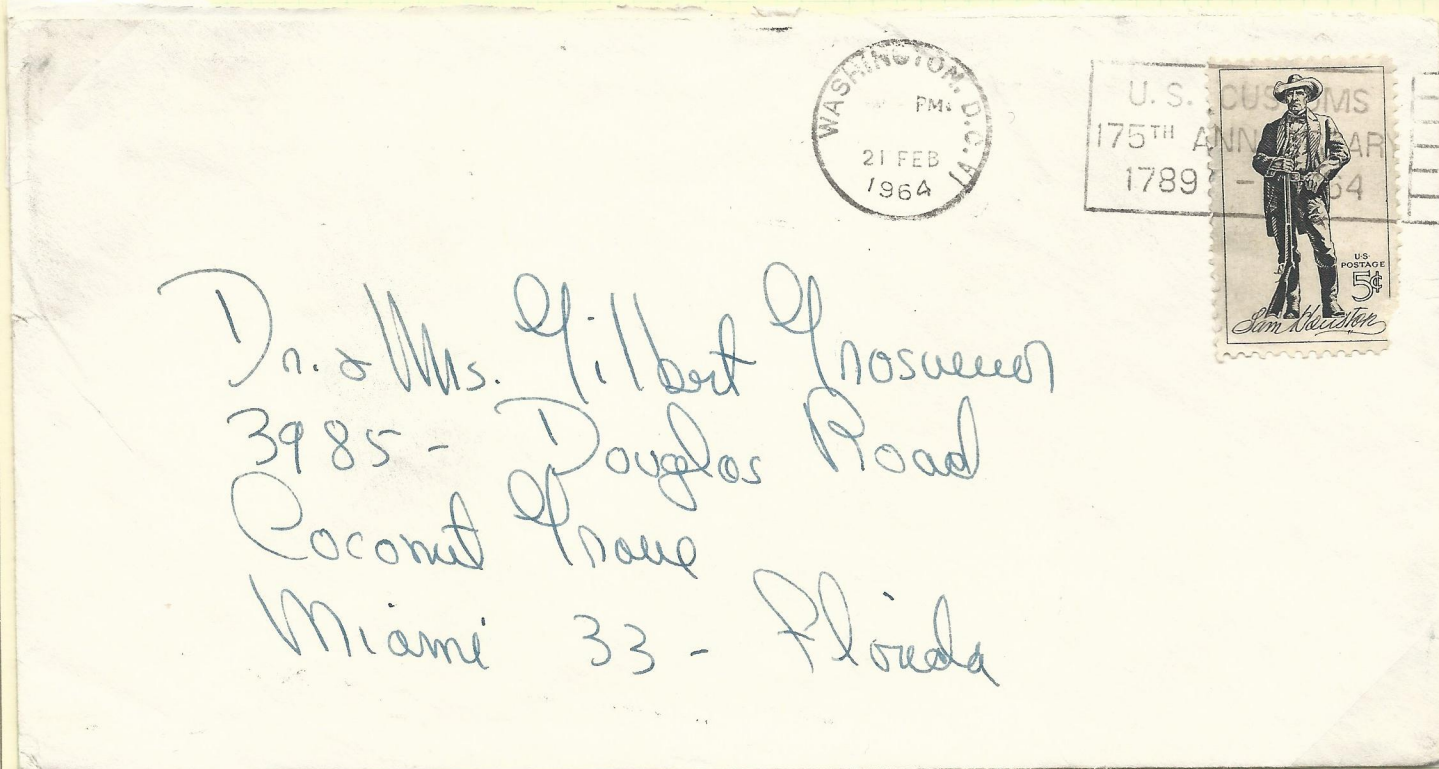 WASHINGTON, D.C.
PM
21 FEB
1964
U.S. CUSTOMS
175TH ANNIVERSARY
1789 - 1964
U.S.
POSTAGE
5¢
Sam Houston
Dr. & Mrs. Gilbert Grosvenor
3985 - Douglas Road
Coconut Grove
Miami 33 - Florida